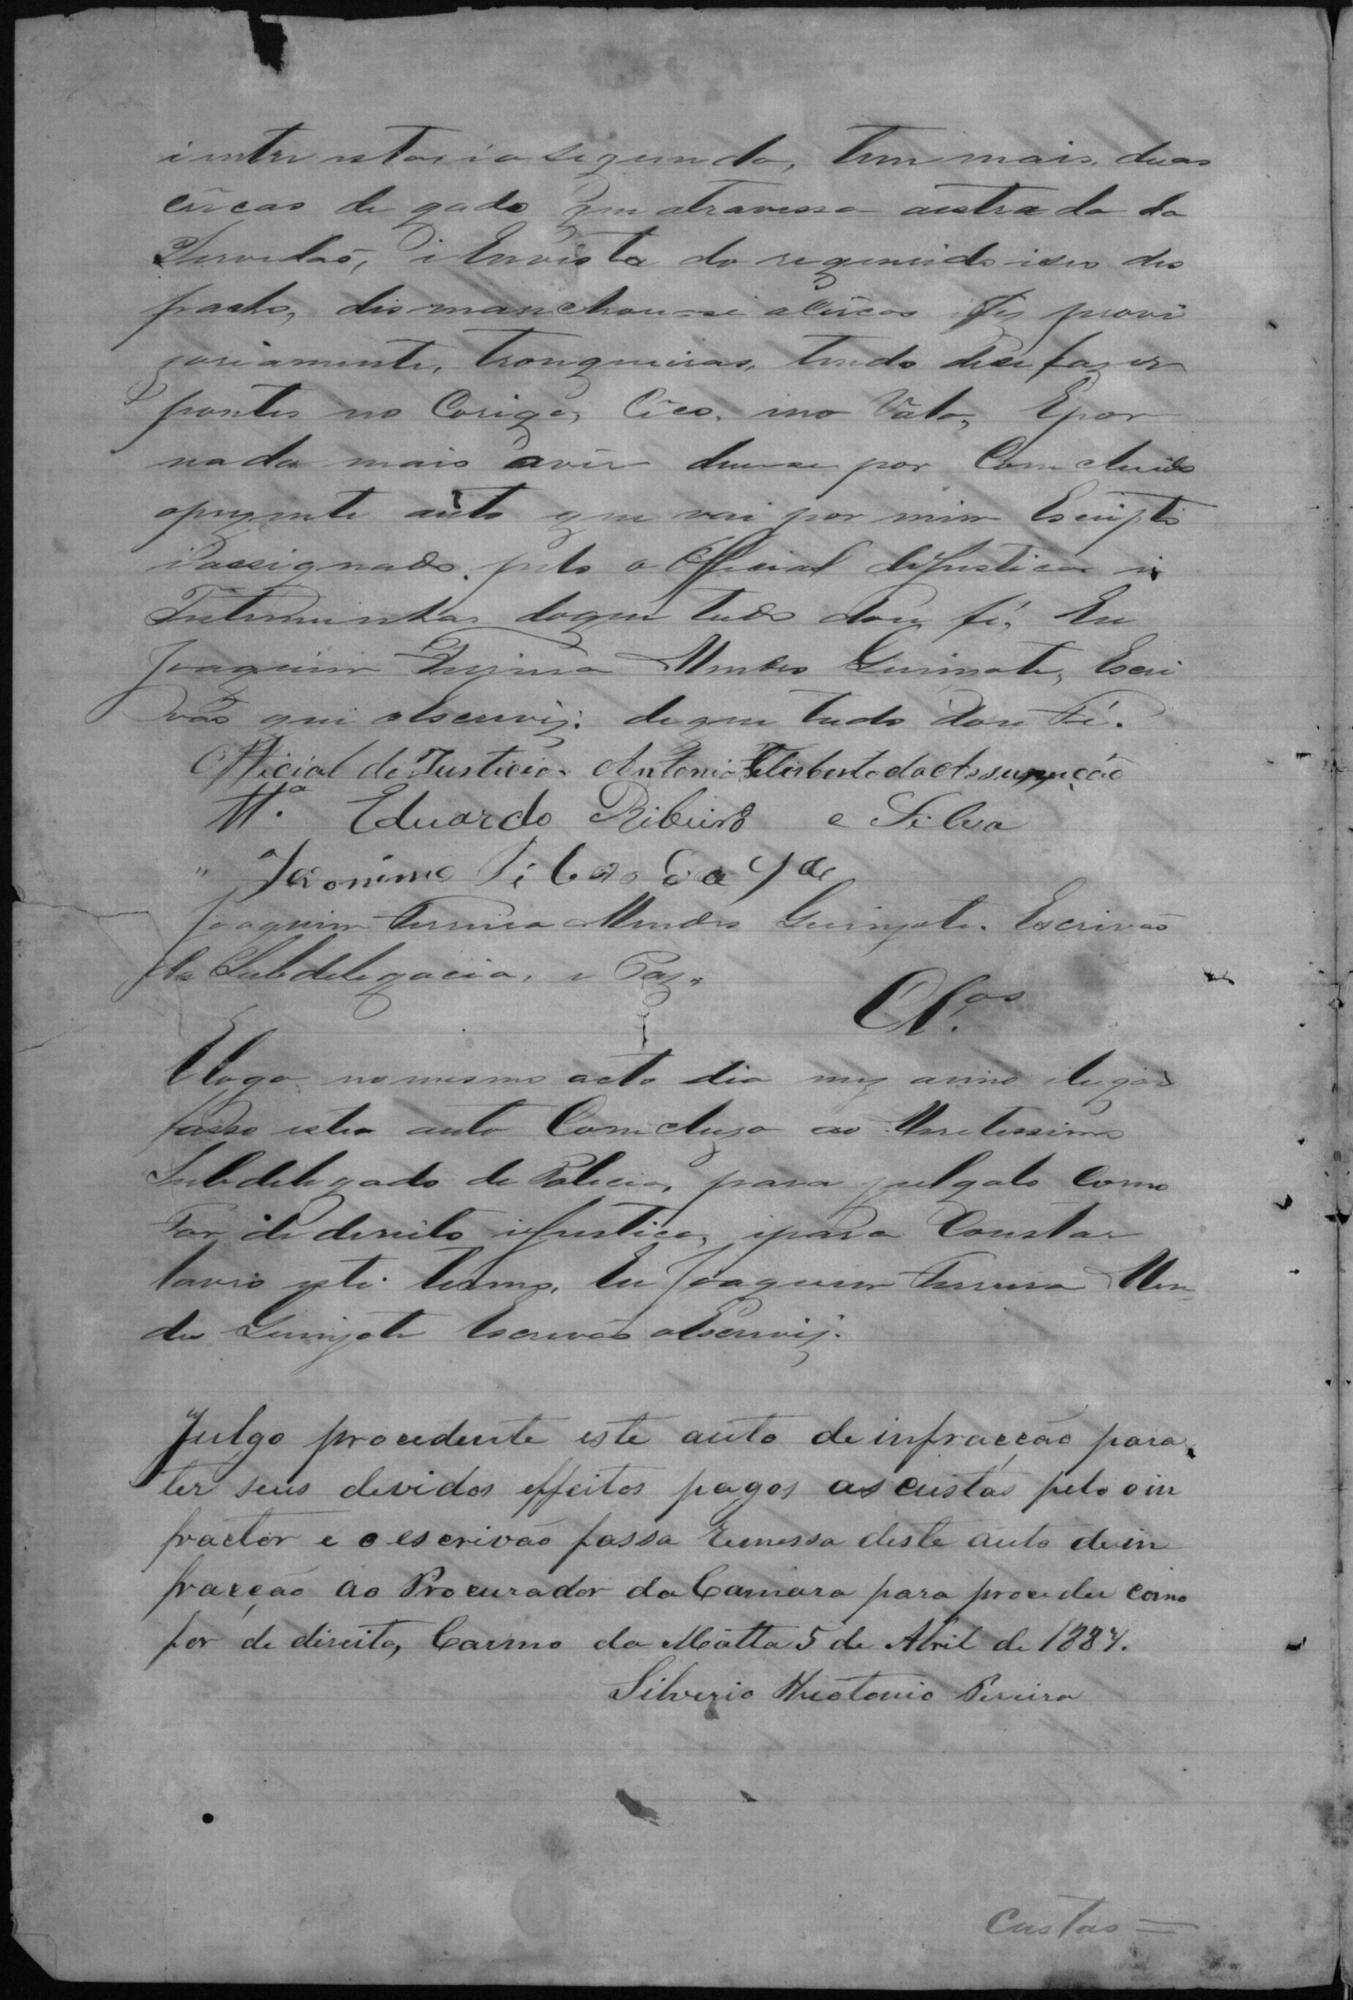 i entre estas ia segunda, tem mais duas
cercas de gado que atravessa aestrada da
Servidão, i Envista do requerido iseo des
pacho, dismanchouse a Cercas i fes provi
zoriamente, tronqueiras, tendo dise fazer
pontes no Corigo, Cêco, ino Válo, Epor
nada mais avêr deuse por Comcluido
oprezente auto que vai por mim Escripto
iassignado, pelo o Official deJustica i
Testemunhas doque tudo dou fé, Eu
Joaquim Ferreira Mendes Escri
vão qui obscrevij. deque tudo dou Fé.
Official de Justiçia. Antonio Felisberto da Assumpção
Tt.ª Eduardo Ribeiro e Silva
" Jeronimo
Joaquim Ferreira Mendes Escrivão
da Subdelegacia, e Paz.
Cls.os
E logo no mesmo acto dia mez anno elugar
fasso estes auto Comcluzo ao Meretissimo
Subdelegado de Policia, para julgalo como
For de dereito iJustica, ipara Constar
lavro este termo. Eu Joaquim Ferreira Men
des Escrivão obscrevij.
Julgo procedente este auto de infracção para
ter seus devidos effeitos pagos as custas pelo oin
fractor e o escrivão fassa remessa deste auto dein
fracção ao Procurador da Camara para proceder como
for de direito, Carmo da Matta 5 de Abril de 1884.
Silverio Theotonio Pereira
Custas =